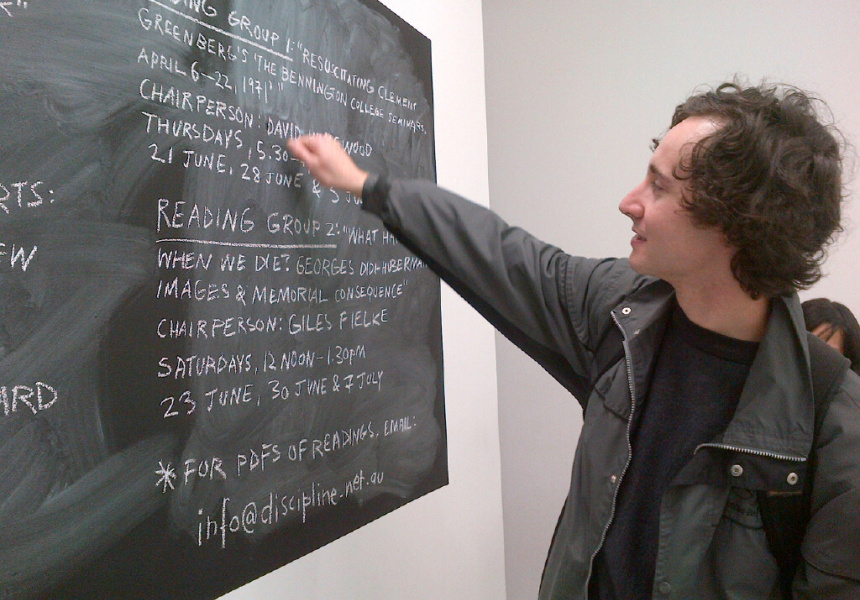 GROUP 1: "RESUSCITATING CLEMENT
GREENBERG'S 'THE BENNINGTON COLLEGE SEMINARS,
APRIL 6–22, 1971'"
CHAIRPERSON: DAVID
THURSDAYS, 5:30–
21 JUNE, 28 JUNE & 5
READING GROUP 2: "WHAT
WHEN WE DIE? GEORGES DIDI-HUBERMAN
IMAGES & MEMORIAL CONSEQUENCE"
CHAIRPERSON: GILES FIELKE
SATURDAYS, 12 NOON–1.30PM
23 JUNE, 30 JUNE & 7 JULY
* FOR PDFS OF READINGS, EMAIL:
info@discipline.net.au